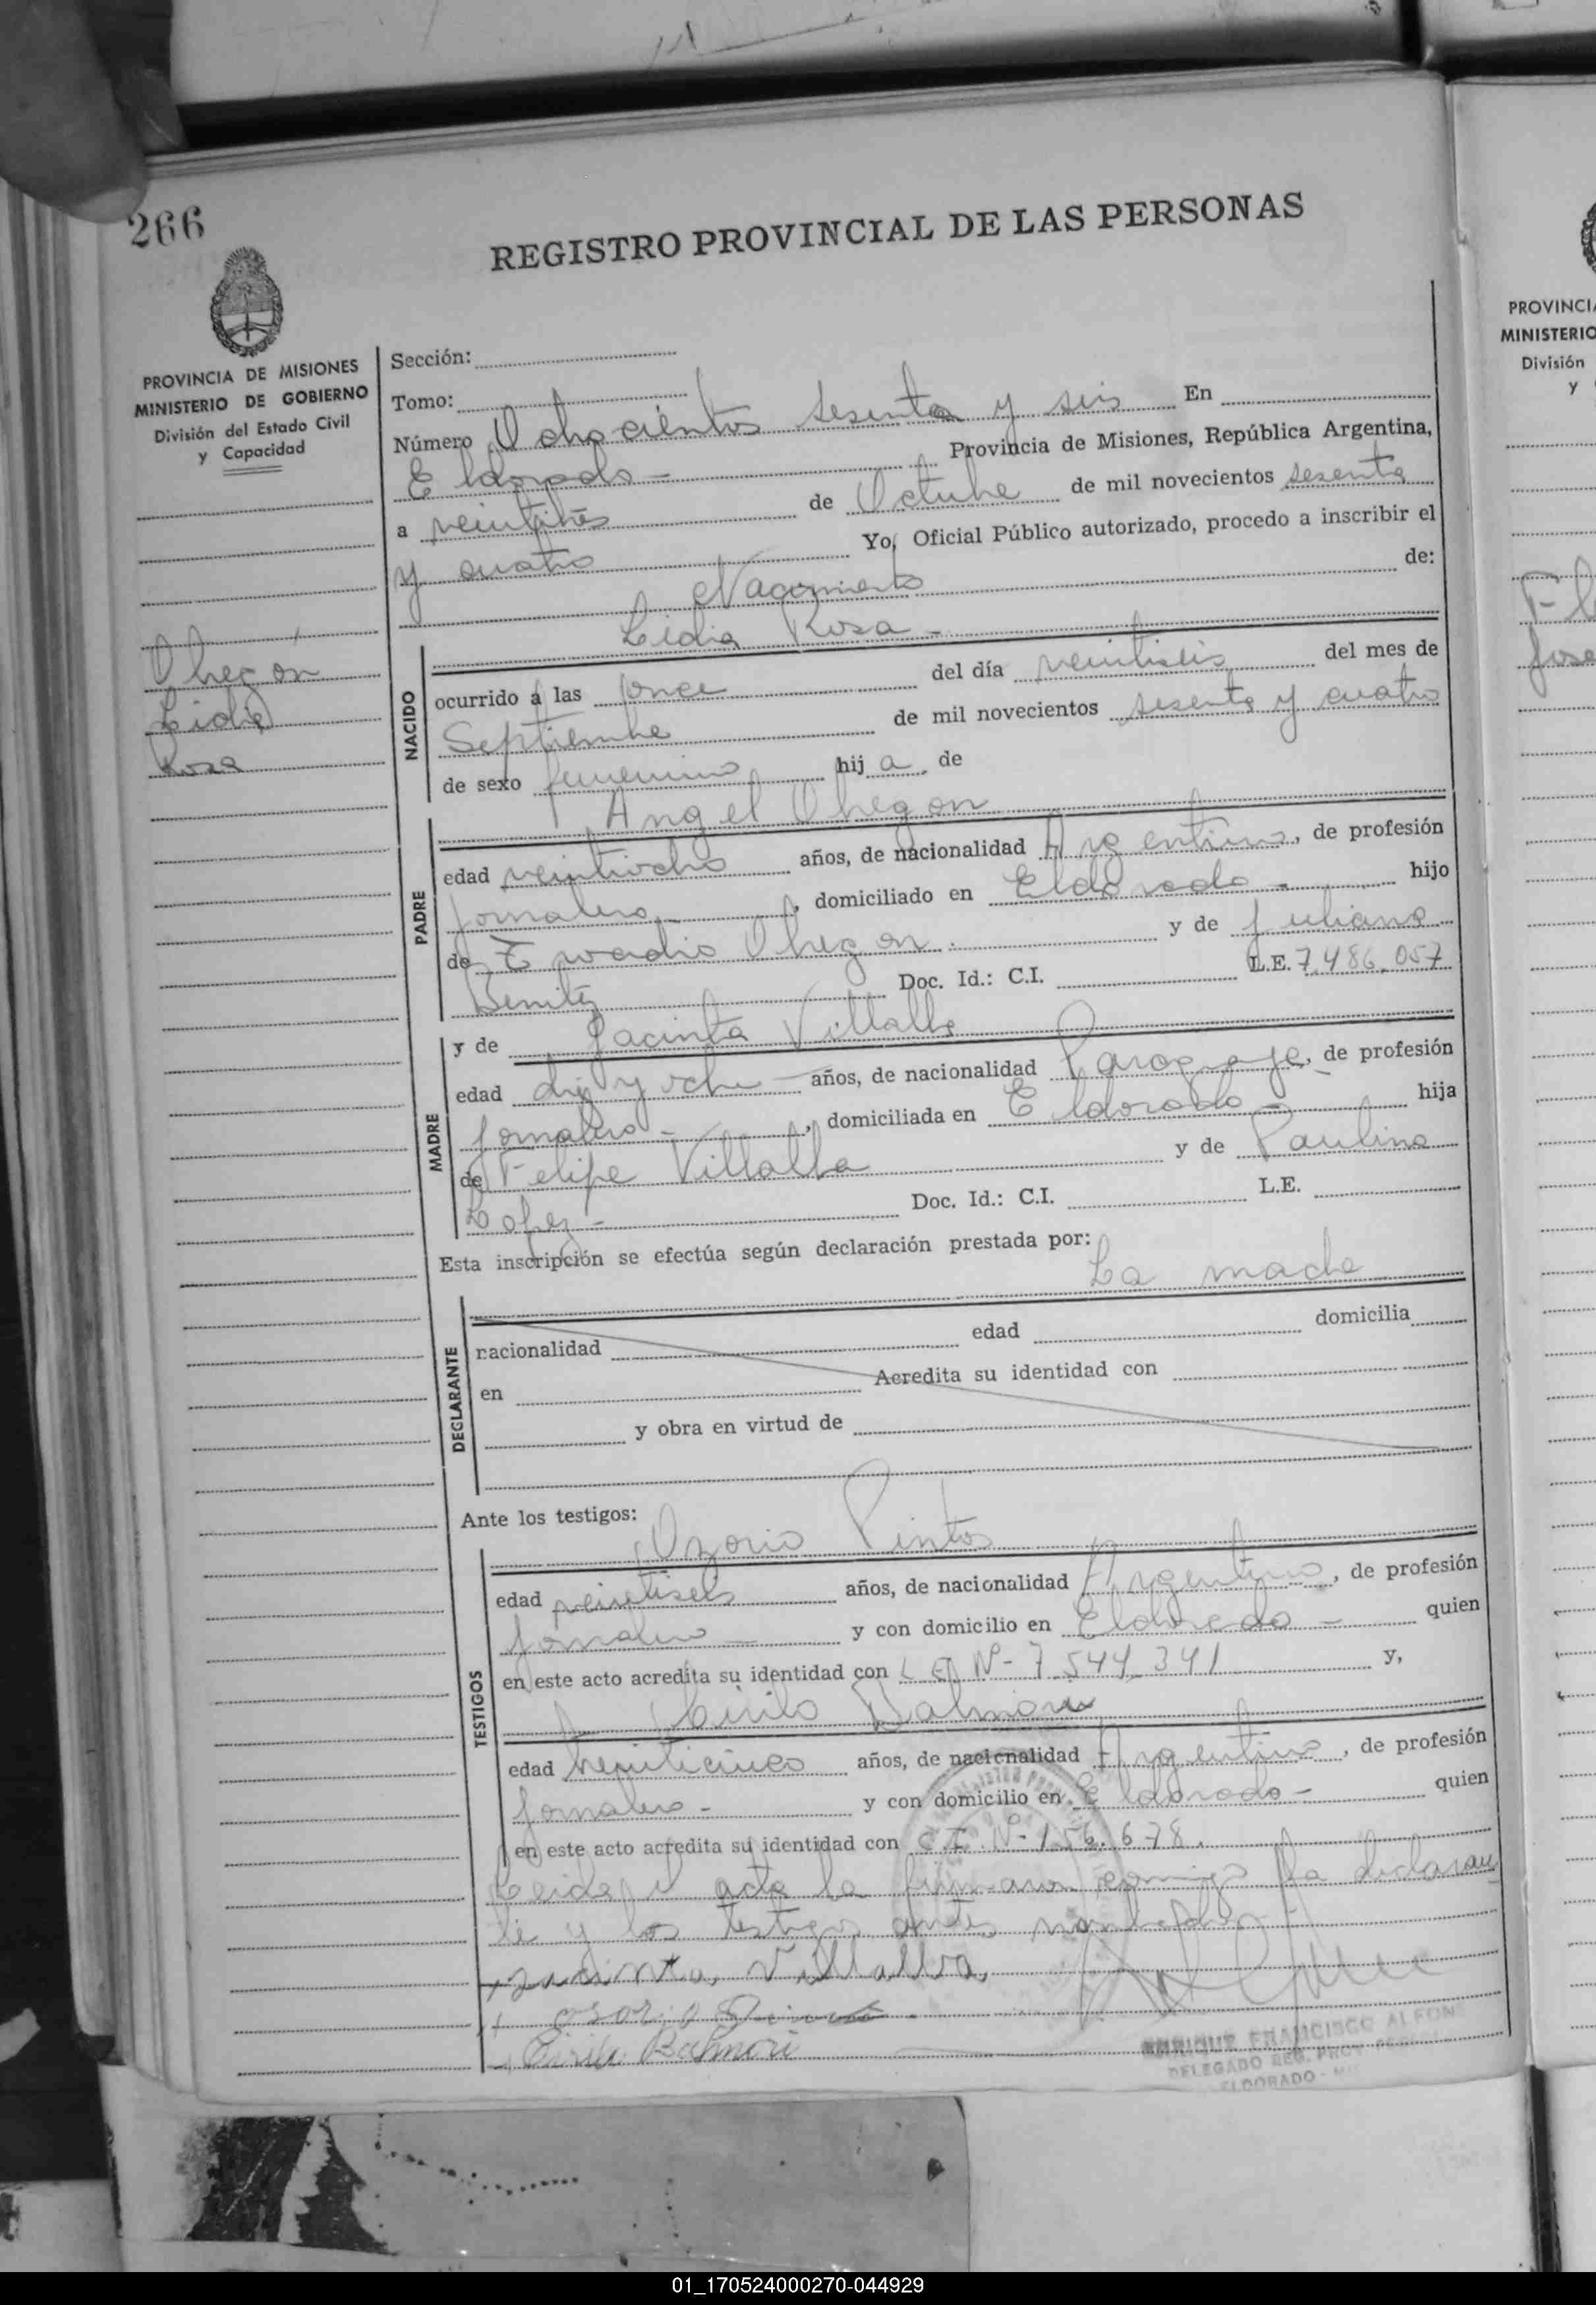 266
REGISTRO PROVINCIAL DE LAS PERSONAS
PROVINCIA DE MISIONES
MINISTERIO DE GOBIERNO
División del Estado Civil
y Capacidad
Obregón
Lidia
Rosa
Sección:
Tomo:
Número Ochocientos sesenta y seis En
Eldorado - Provincia de Misiones, República Argentina,
a veintitrés de Octubre de mil novecientos sesenta
y cuatro Yo, Oficial Público autorizado, procedo a inscribir el
Nacimiento de:
Lidia Rosa -
NACIDO
ocurrido a las once del día veintiseis del mes de
Septiembre de mil novecientos sesenta y cuatro
de sexo femenino hij a de
Angel Obregon
PADRE
edad veintiocho años, de nacionalidad Argentino, de profesión
Jornalero, domiciliado en Eldorado - hijo
de Obregon y de Juliana
Benitez Doc. Id.: C.I. L.E. 7.486.057
y de Jacinta Villalba
MADRE
edad diez y ocho años, de nacionalidad Paraguaya, de profesión
Jornalero -, domiciliada en Eldorado - hija
de Felipe Villalba y de Paulina
Lopez - Doc. Id.: C.I. L.E.
Esta inscripción se efectúa según declaración prestada por:
La madre
DECLARANTE
nacionalidad edad domicilia
en Acredita su identidad con
y obra en virtud de
Ante los testigos:
Ozorio Pintos
TESTIGOS
edad veintiseis años, de nacionalidad Argentino, de profesión
Jornalero - y con domicilio en Eldorado - quien
en este acto acredita su identidad con L E Nº- 7.544.341 y,
Cirilo Balmori
edad veinticinco años, de nacionalidad Argentino, de profesión
Jornalero - y con domicilio en Eldorado - quien
en este acto acredita su identidad con C.I. Nº- 156.678.
Leida el acta la firmaron conmigo la declaran
te y los testigos antes nombrados -
Jacinta, Villalva,
osorio
Cirilo Balmori
ENRIQUE FRANCISCO ALFON
DELEGADO REG. PROV. PERS
ELDORADO - M
PROVINCI
MINISTERIO
División
y
01_170524000270-044929